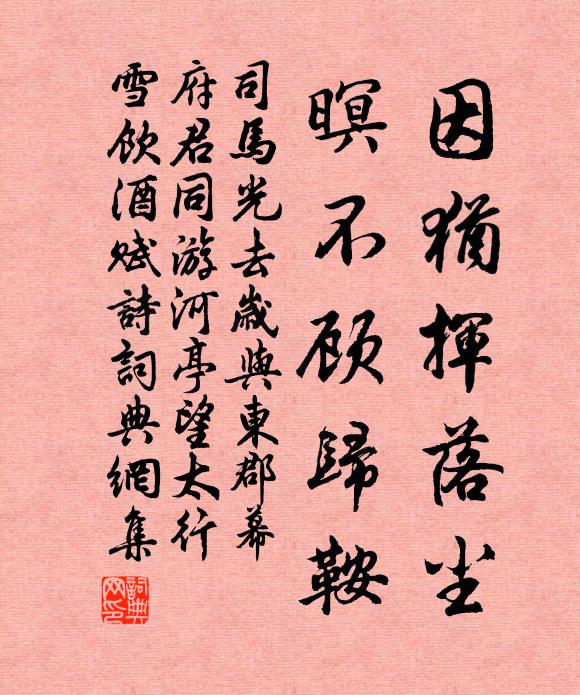 因猶揮落尘
暝不顾歸鞍
司馬光去歲與東郡幕
府君同游河亭望太行
雪飲酒賦詩詞典網集
詞典网印